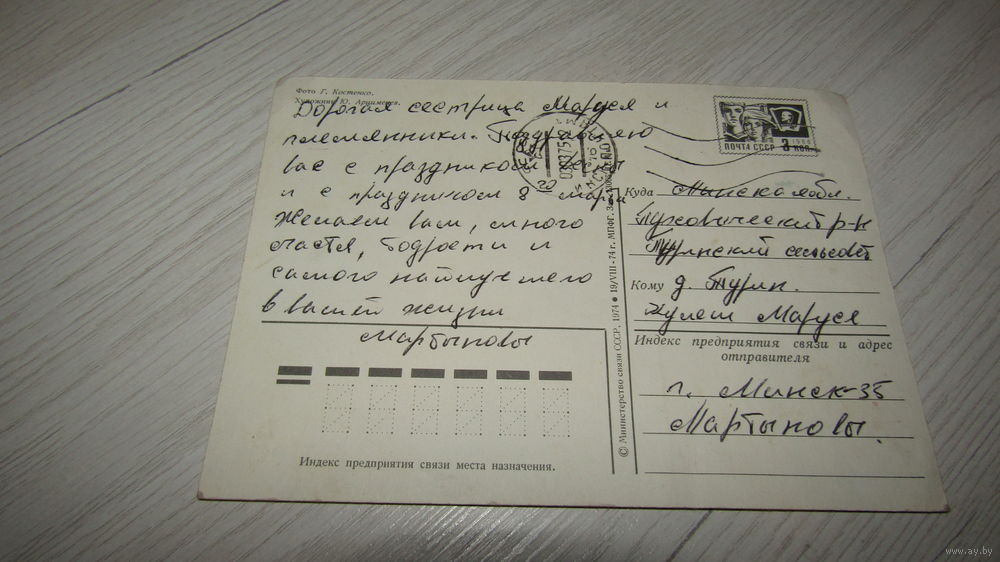 Фото Г. Костенко.
Художник Ю. Арцименев.
Дорогая сестрица Маруся и
племянники. Поздравляю
вас с праздником весны
и с праздником 8 марта
желаем вам, много
счастья, бодрости и
самого наилучшего
в вашей жизни
Мартыновы
Индекс предприятия связи места назначения.
© Министерство связи СССР, 1974 ● 19/VIII-74 г. МПФГ.
ПОЧТА СССР 3 коп.
1966
МИНСК
Куда Минская обл.
Пуховический р-н
Туринский сельсовет
Кому д. Турин.
Кулеш Маруся
Индекс предприятия связи и адрес
отправителя
г. Минск-35
Мартыновы.
www.ay.by